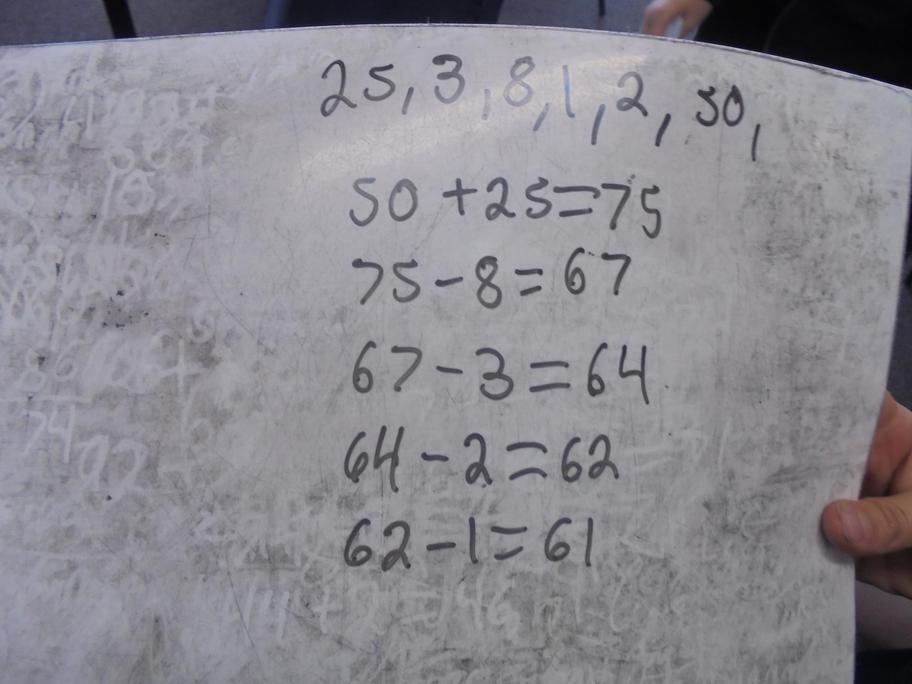 25, 3, 8, 1, 2, 50,
50 + 25 = 75
75 - 8 = 67
67 - 3 = 64
64 - 2 = 62
62 - 1 = 61